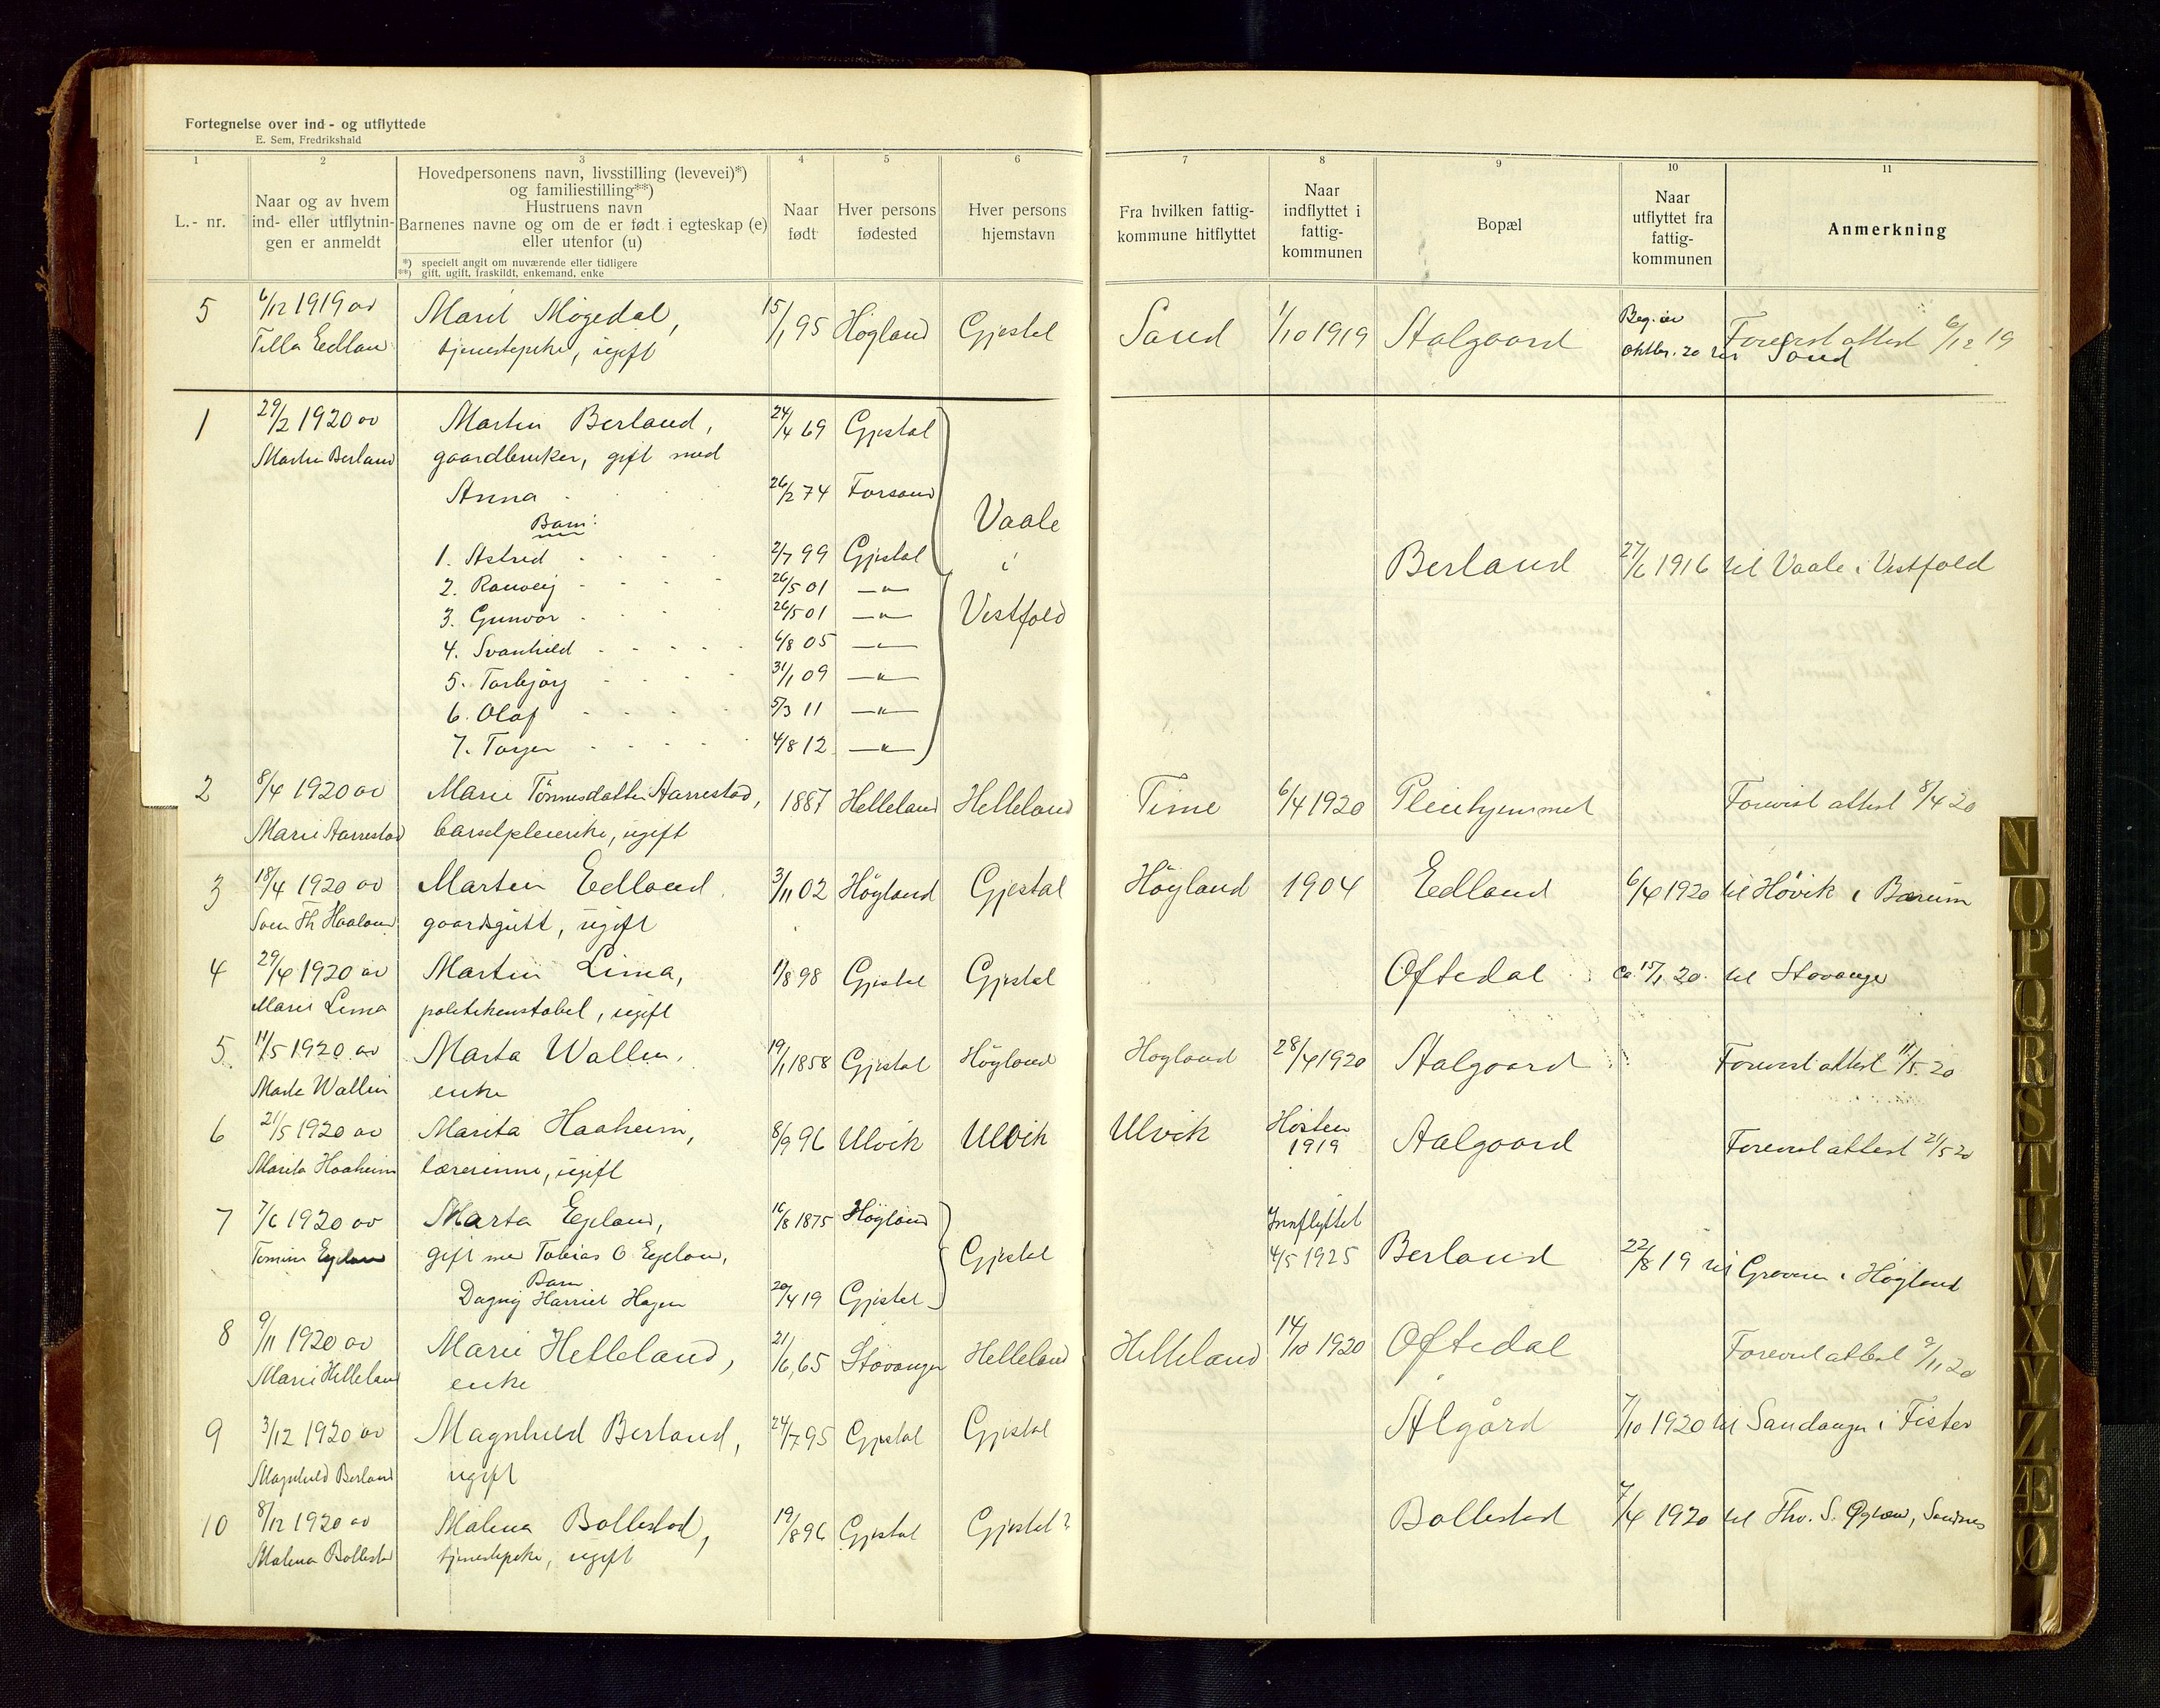 Fortegnelse over ind- og utflyttede
E. Sem, Fredrikshald
1 2 3 4 5 6 7 8 9 10 11
L.- nr.
Naar og av hvem
ind- eller utflytnin-
gen er anmeldt
Hovedpersonens navn, livsstilling (levevei)*)
og familiestilling**)
Hustruens navn
Barnenes navne og om de er født i egteskap (e)
eller utenfor (u)
*) specielt angit om nuværende eller tidligere
**) gift, ugift, fraskildt, enkemand, enke
Naar
født
Hver persons
fødested
Hver persons
hjemstavn
Fra hvilken fattig-
kommune hitflyttet
Naar
indflyttet i
fattig-
kommunen
Bopæl
Naar
utflyttet fra
fattig-
kommunen
Anmerkning
5 6/12 1919 av Marit Mögedal, 15/1 95 Högland Gjestal Sand 1/10 1919 Aalgaard Beg. av Forevist attest 6/12 19
tjenestepike, ugift oktbr. 20 til Sand
1 29/2 1920 av Martin Berland, 24/4 69 Gjestal
Martin Berland gaardbruker, gift med
Anna 26/2 74 Forsand
Barn: Vaale
1. Astrid 2/7 99 Gjestal i Berland 27/6 1916 til Vaale i Vestfold
2. Ranveig 26/5 01 —"—
3. Gunvor 26/5 01 —"— Vestfold
4. Svanhild 6/8 05 —"—
5. Torbjörg 31/1 09 —"—
6. Olaf 5/3 11 —"—
7. Torger 4/8 12 —"—
2 8/4 1920 av Marie Tönnesdatter Aarrestad, 1887 Helleland Helleland Time 6/4 1920 Pleiehjemmet Forevist attest 8/4 20
Marie Aarrestad barselpleierske, ugift
3 18/4 1920 av Martin Edland 3/11 02 Höyland Gjestal Höyland 1904 Edland 6/4 1920 til Hövik i Bærum
Sven Th Haaland gaardsgutt, ugift
4 29/4 1920 av Martin Lima, 11/8 98 Gjestal Gjestal Oftedal ca 15/1 20 til Stavanger
Marie Lima politikonstabel, ugift
5 11/5 1920 av Marta Wallin, 19/1 1858 Gjestal Höyland Hoyland 28/4 1920 Aalgaard Forevist attest 11/5 20
Marta Wallin enke
6 21/5 1920 av Marita Haaheim, 8/9 96 Ulvik Ulvik Ulvik Hösten 1919 Aalgaard Forevist attest 21/5 20
Marita Haaheim lærerinne, ugift
7 7/6 1920 av Marta Egeland, 16/8 1875 Höyland Innflyttet
gift me Tobias O Egeland, Gjestal 4/5 1925 Berland 22/8 19 til Graveren i Höyland
Barn
Dagny Harriet Hagen 20/4 19 Gjestal
8 9/11 1920 av Marie Helleland, 21/6 65 Stavanger Helleland Helleland 14/10 1920 Oftedal Forevist attest 9/11 20
Marie Helleland enke
9 3/12 1920 av Magnhild Berland, 24/7 95 Gjestal Gjestal Ålgård 7/10 1920 til Sandanger i Fister
Magnhild Berland ugift
10 8/12 1920 av Malena Bollestad, 19/8 96 Gjestal Gjestal? Bollestad 7/4 1920 til Thv. S. Sandnes
Malena Bollestad tjenestepike, ugift
N
O
P
Q
R
S
T
U
W
X
Y
Z
Æ
Ø